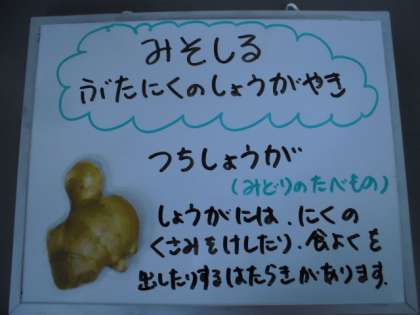 みそしる
ぶたにくのしょうがやき
つちしょうが
(みどりのたべもの)
しょうがには、にくの
くさみをけしたり、食よくを
出したりするはたらきがあります。